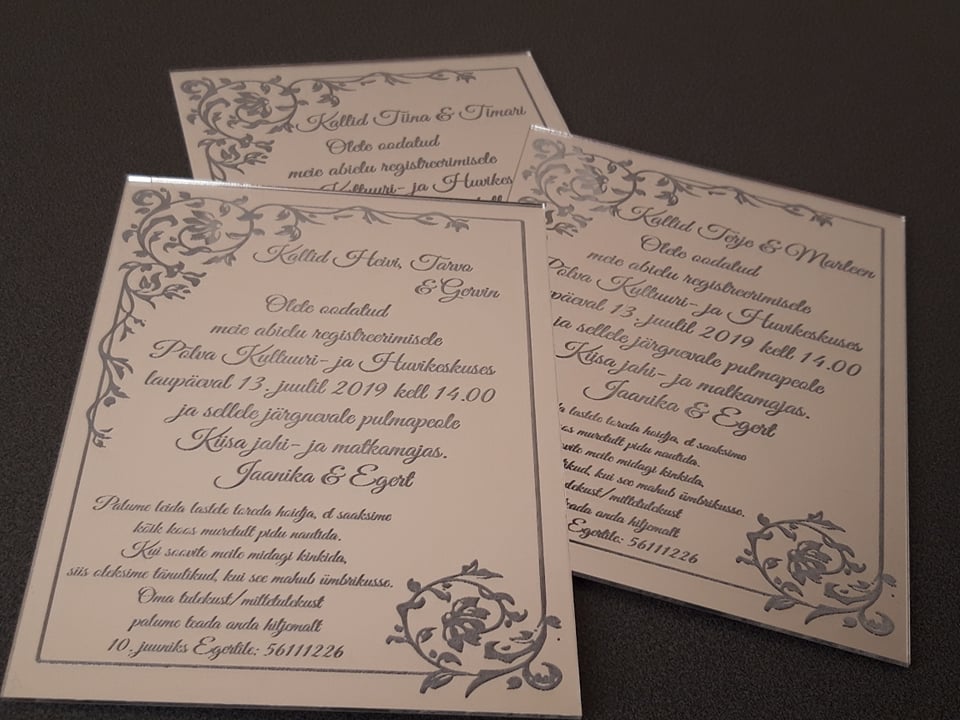 Kallid Tiina & Timari
Olete oodatud
meie abielu registreerimisele
Kultuuri- ja Huvikes
Kallid Heivi, Tarvo
& Gervin
Olete oodatud
meie abielu registreerimisele
Põlva Kultuuri- ja Huvikeskuses
laupäeval 13. juulil 2019 kell 14.00
ja sellele järgnevale pulmapeole
Kiisa jahi- ja matkamajas.
Jaanika & Egert
Palume leida lastele toreda hoidja, et saaksime
kõik koos muretult pidu nautida.
Kui soovite meile midagi kinkida,
siis oleksime tänulikud, kui see mahub ümbrikusse.
Oma tulekust/mittetulekust
palume teada anda hiljemalt
10. juuniks Egertile: 56111226
Kallid Terje & Marleen
Olete oodatud
meie abielu registreerimisele
Põlva Kultuuri- ja Huvikeskuses
päeval 13. juulil 2019 kell 14.00
ja sellele järgnevale pulmapeole
Kiisa jahi- ja matkamajas.
Jaanika & Egert
lastele toreda hoidja, et saaksime
oos muretult pidu nautida.
ovite meile midagi kinkida,
ikud, kui see mahub ümbrikusse.
ulekust/mittetulekust
eada anda hiljemalt
Egertile: 56111226